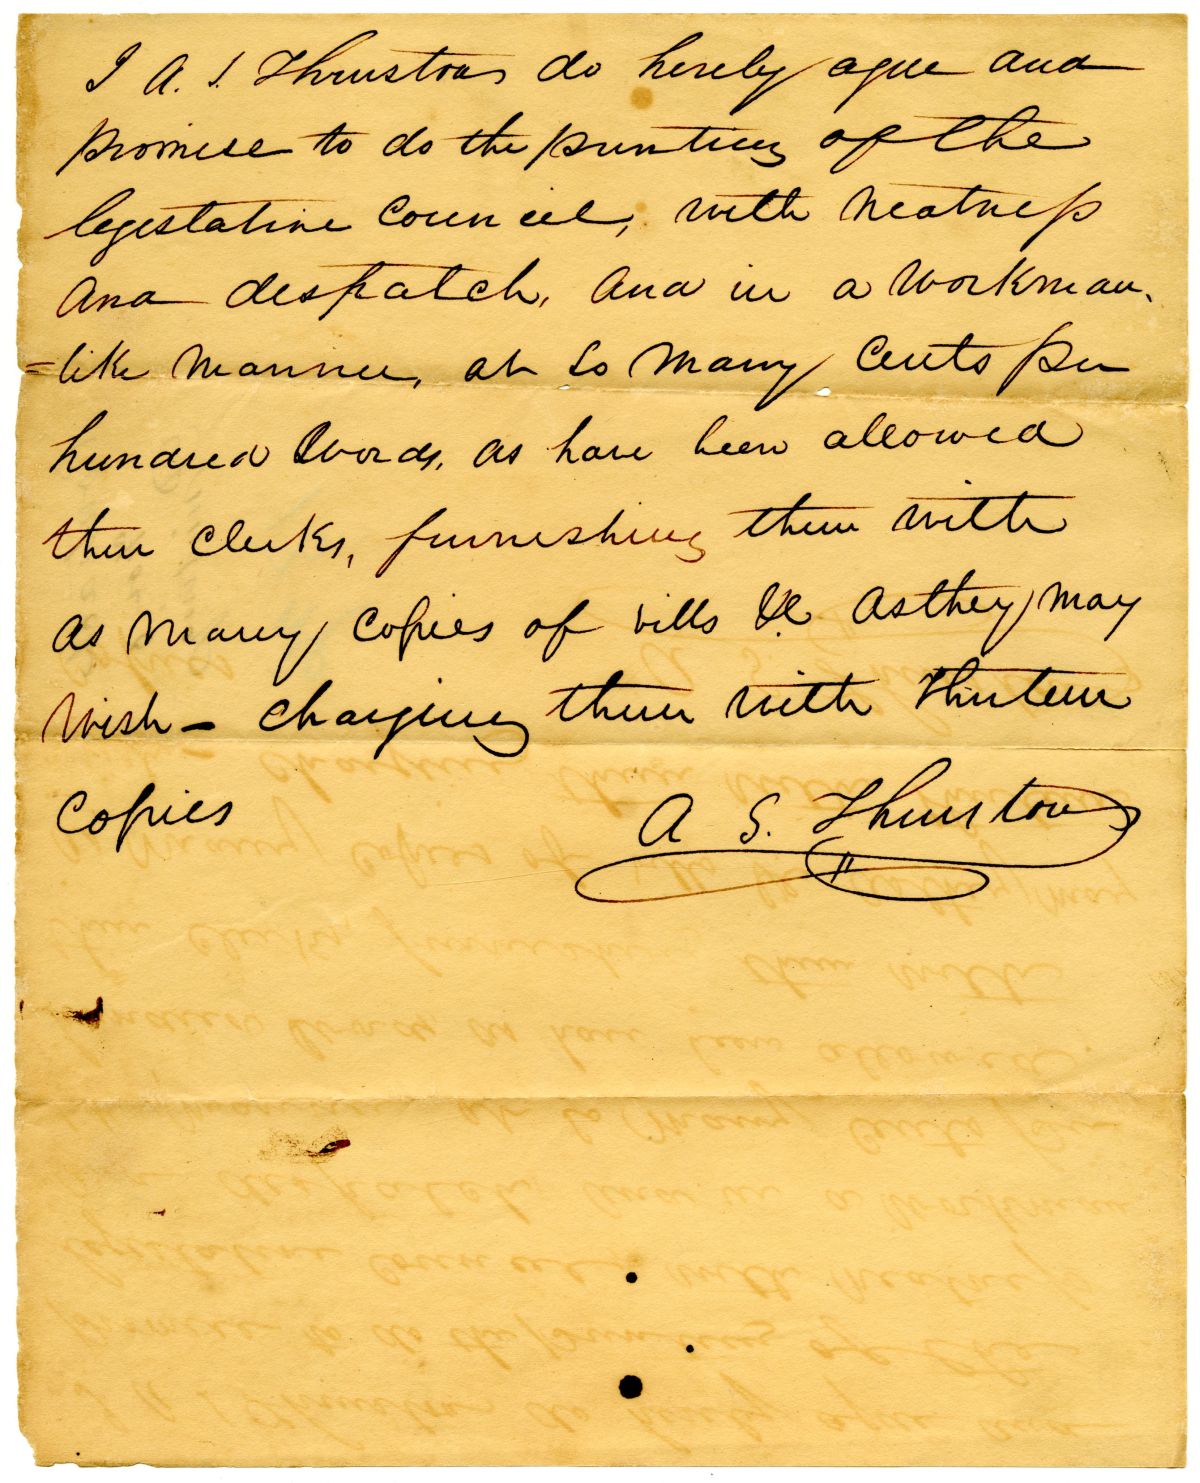 I A. S. Thruston do hereby agree and
promise to do the printing of the
legislative Council, with neatness
and despatch, and in a workman,
=like manner, at so many Cents per
hundred words, as have been allowed
their Clerks, furnishing them with
as many Copies of bills &c as they may
wish – charging them with thirteen
Copies
A S. Thruston